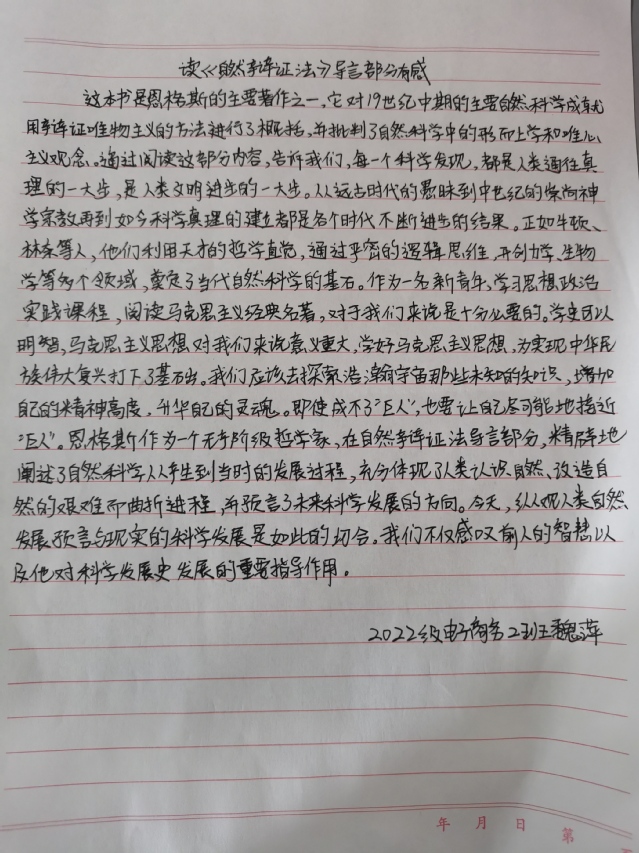 读《自然辩证法》导言部分有感
这本书是恩格斯的主要著作之一,它对19世纪中期的主要自然科学成就
用辩证唯物主义的方法进行了概括,并批判了自然科学中的形而上学和唯心
主义观念。通过阅读这部分内容,告诉我们,每一个科学发现,都是人类通往真
理的一大步,是人类文明进步的一大步。从远古时代的愚昧到中世纪的崇尚神
学宗教再到如今科学真理的建立都是各个时代不断进步的结果。正如牛顿、
林奈等人,他们利用天才的哲学直觉,通过严密的逻辑思维,开创力学、生物
学等多个领域,奠定了当代自然科学的基石。作为一名新青年,学习思想政治
实践课程,阅读马克思主义经典名著,对于我们来说是十分必要的。学史可以
明智,马克思主义思想对我们来说意义重大,学好马克思主义思想,为实现中华民
族伟大复兴打下了基础。我们应该去探索浩瀚宇宙那些未知的知识,增加
自己的精神高度,升华自己的灵魂。即使成不了"巨人",也要让自己尽可能地接近
"巨人"。恩格斯作为一个无产阶级哲学家,在自然辩证法导言部分,精辟地
阐述了自然科学从产生到当时的发展过程,充分体现了人类认识自然、改造自
然的艰难而曲折进程,并预言了未来科学发展的方向。今天,纵观人类自然
发展预言与现实的科学发展是如此的切合。我们不仅感叹前人的智慧以
及他对科学发展史发展的重要指导作用。
2022级电子商务2班王魏萍
年 月 日 第